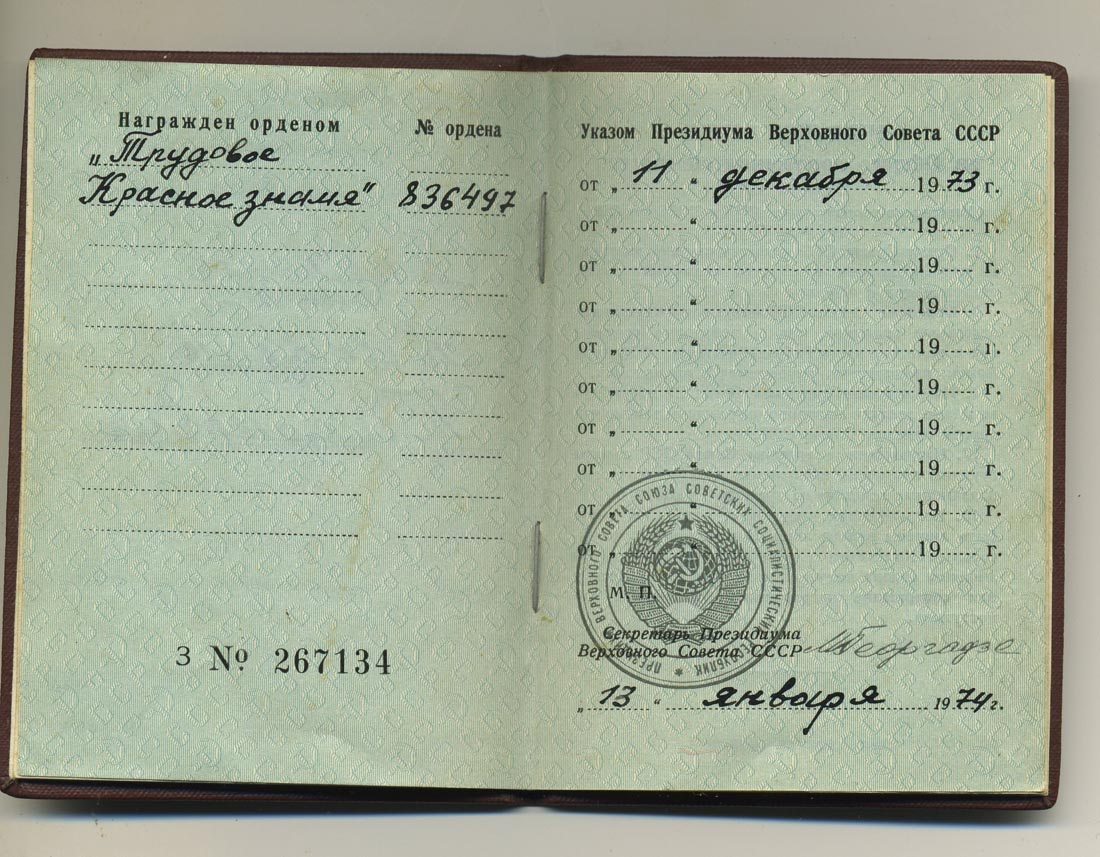 Награжден орденом
№ ордена
„Трудовое
Красное знамя“ 836497
З № 267134
Указом Президиума Верховного Совета СССР
от „ 11 “ декабря 1973 г.
от „ “ 19 г.
от „ “ 19 г.
от „ “ 19 г.
от „ “ 19 г.
от „ “ 19 г.
от „ “ 19 г.
от „ “ 19 г.
от „ “ 19 г.
от „ “ 19 г.
ПРЕЗИДИУМ ВЕРХОВНОГО СОВЕТА СОЮЗА СОВЕТСКИХ СОЦИАЛИСТИЧЕСКИХ РЕСПУБЛИК
М. П.
Секретарь Президиума
Верховного Совета СССР
М Георгадзе
„ 13 “ января 1974 г.